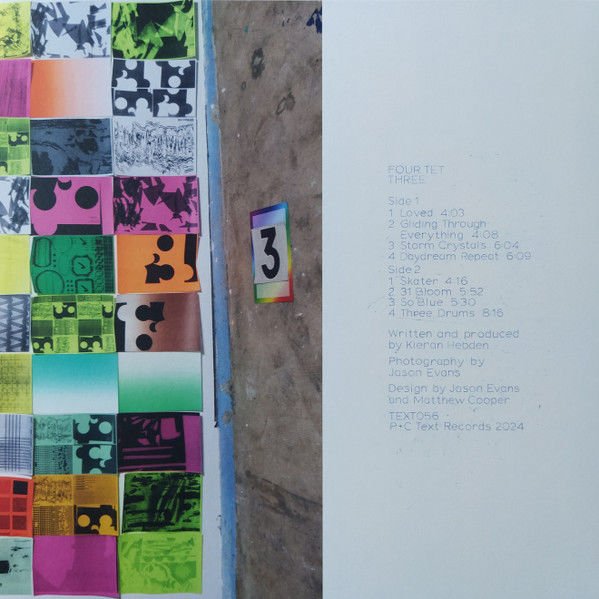 3
FOUR TET
THREE
Side 1
1 Loved 4:03
2 Gliding Through
Everything 4:08
3 Storm Crystals 6:04
4 Daydream Repeat 6:09
Side 2
1 Skater 4:16
2 31 Bloom 5:52
3 So Blue 5:30
4 Three Drums 8:16
Written and produced
by Kieran Hebden
Photography by
Jason Evans
Design by Jason Evans
and Matthew Cooper
TEXT056
P+C Text Records 2024